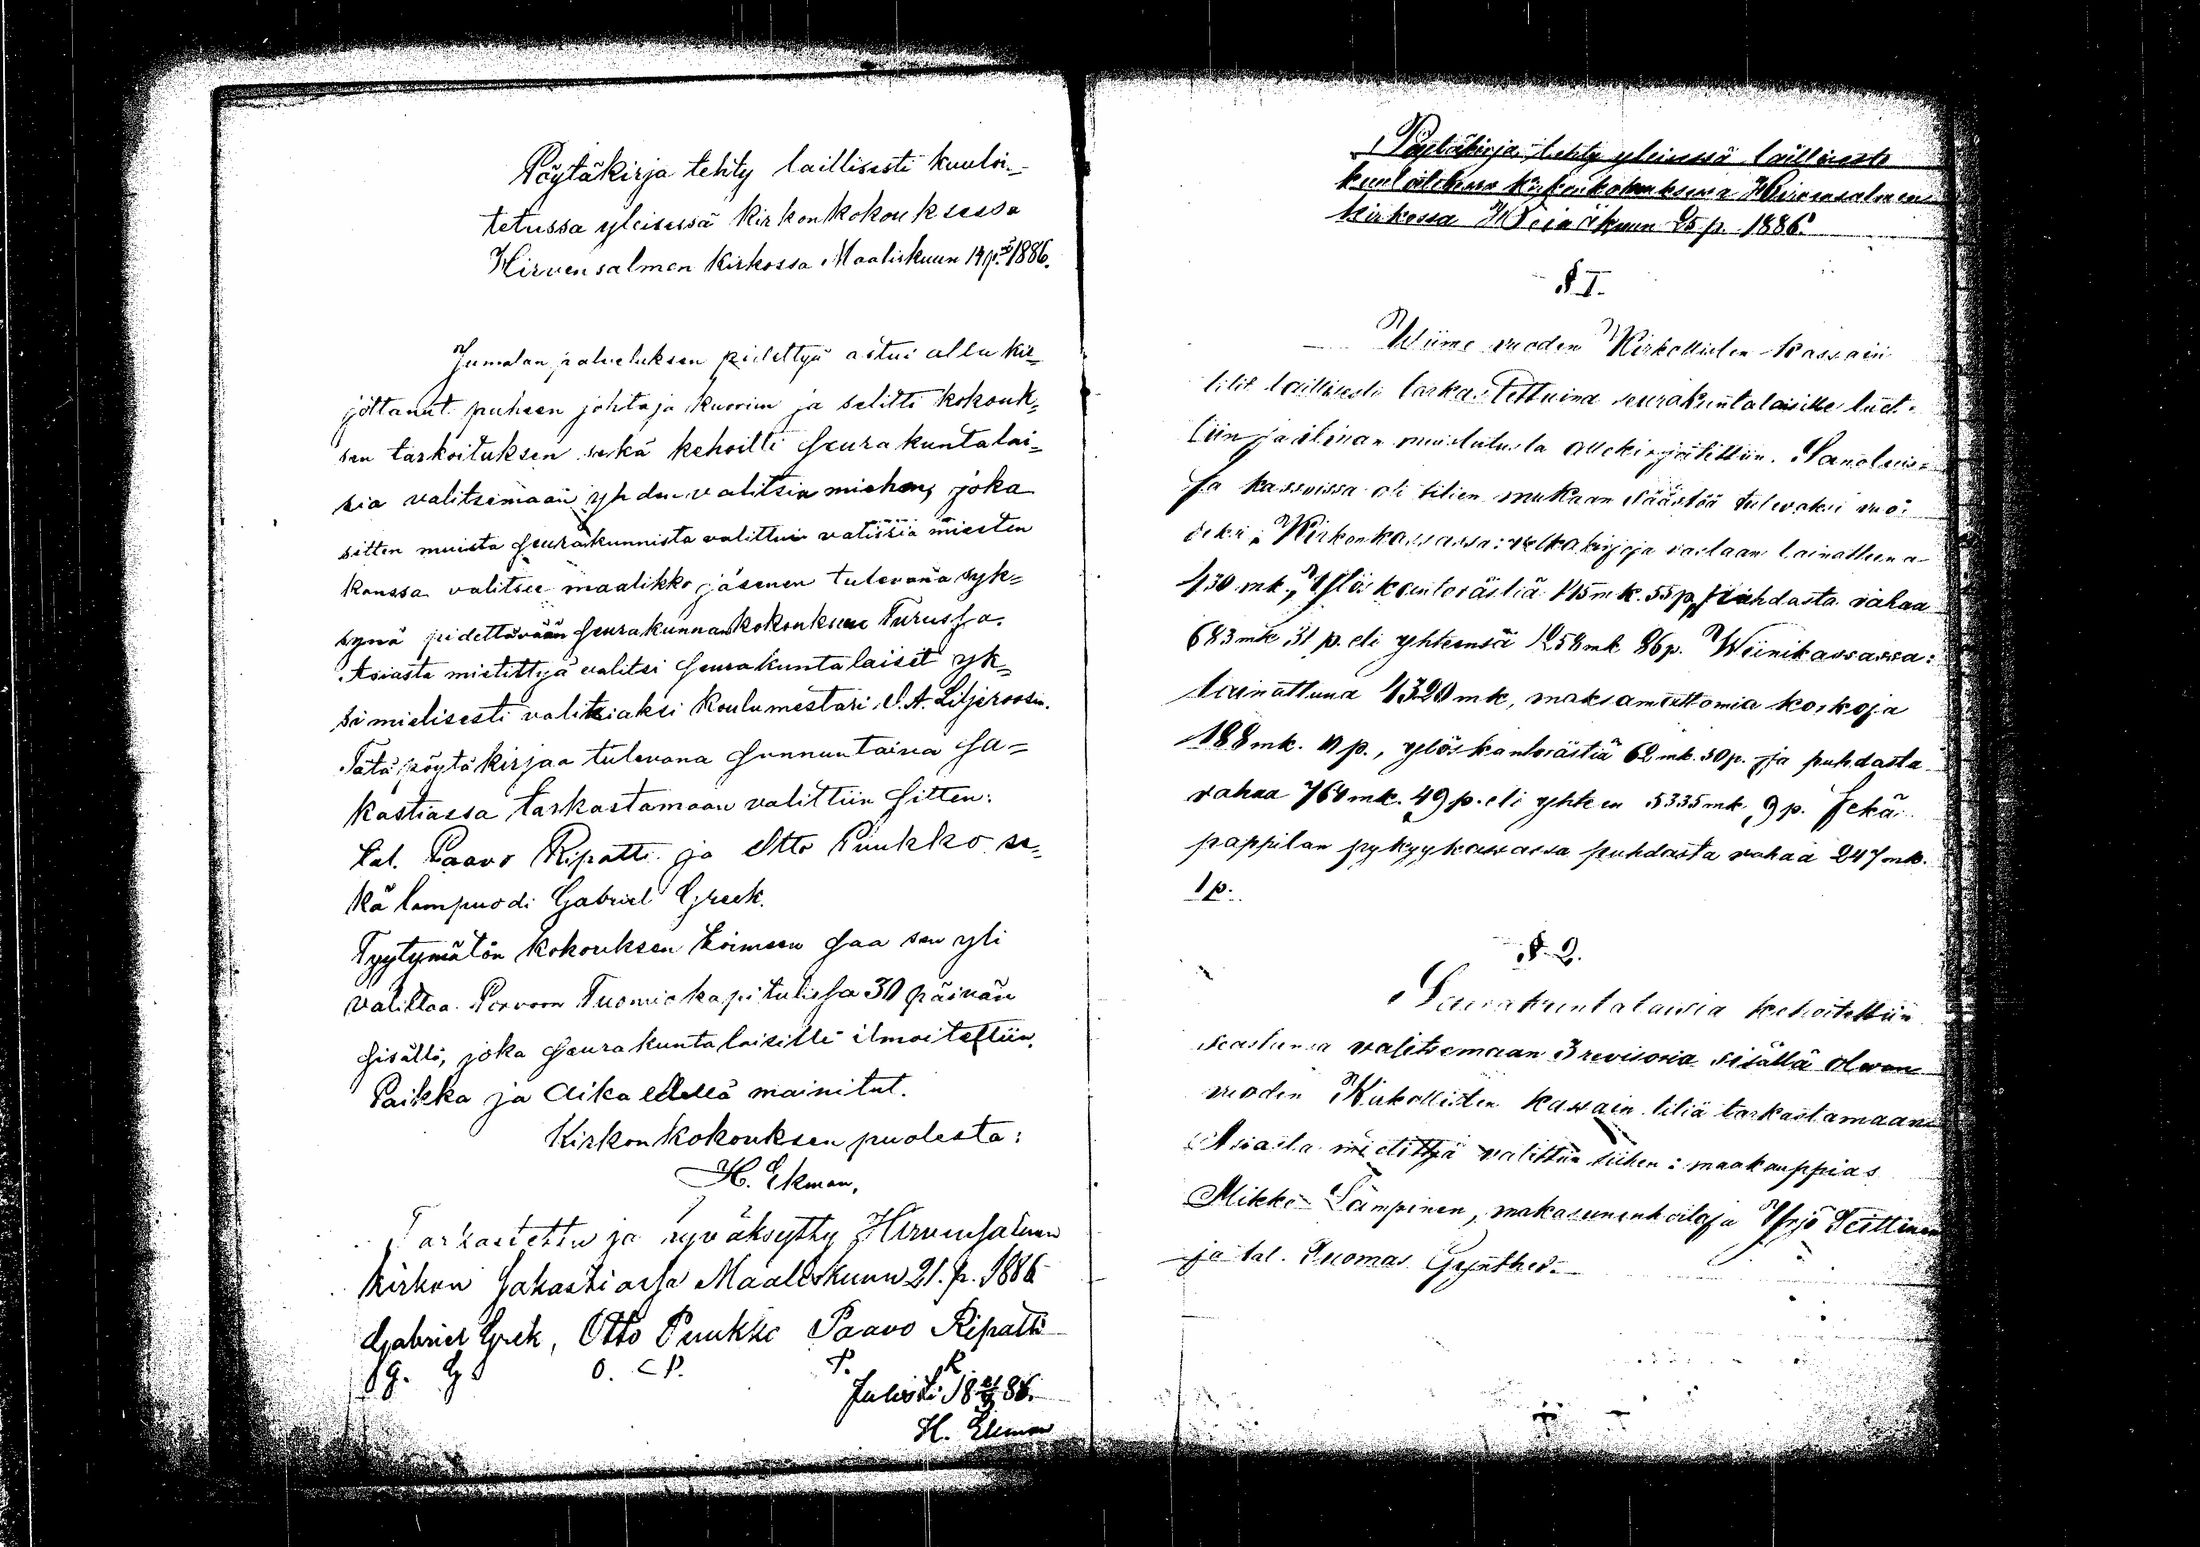 Pöytäkirja tehty laillisesti kuuloi-
tetussa yleisessä kirkonkokouksessa
Hirvensalmen kirkossa Maaliskuun 14 p:nä 1886.
Jumalan palveluksen pidettyä astui alla kir-
jottanut puheen johtaja kuorim ja selitti kokouk-
sen tarkoituksen sekä kehoitti Seurakuntalai-
sia valitsemaan yhden valitsia miehen, joka
sitten muista Seurakunnista valittuin valissia miesten
kanssa valitsee maalikko jäsenen tulevana syk-
synä pidettävään Seurakunnan kokoukseen Turussa.
Asiasta mietittyä valitsi Seurakuntalaiset yk-
si mielisesti valitsiaksi koulumestari S. A. Liljeroosin.
Tätä pöytäkirjaa tulevana Sunnuntaina Sa-
kastiassa tarkastamaan valittiin Sitten:
tal. Paavo Ripatti ja Otto Puukko se-
kä lampuodi Gabriel Greek.
Tyytymätön kokouksen toimeen Saa sen yli
valittaa Porvoon Tuomiokapitulissa 30 päivän
Sisällä, joka Seurakuntalaisille ilmoitettiin.
Paikka ja Aika edellä mainitut.
Kirkonkokouksen puolesta:
H. Ekman,
Tarkastettu ja hyväksytty Hirvensalmen
kirkon Sakastiassa Maaliskuun 21. p. 1886
Gabriel Grek, Otto Puukko Paavo Ripatti
G. G O. P. P. R
Julisti 18 21/3 86.
H. Ekman
Pöytäkirja tehty yleisessä laillisesti
kuuloitetussa kirkonkokouksessa Hirvensalmen
kirkossa Heinäkuun 25 p. 1886.
§ I.
Wiime vuoden Kirkollisten kassain
tilit laillisesti tarkastettuina seurakuntalaisille luet-
tiin ja ilman muistutusta allekirjoitettiin. Sanotuis-
sa kassoissa oli tilien mukaan säästöä tulevaksi vuo-
deksi: Kirkonkassassa: velkakirjoja vastaan lainattuna
430 mk., Ylöskantorästiä 145 mk. 55 p, puhdasta rahaa
683 mk 31 p. eli yhteensä 1258 mk 86 p. Wiinikassassa:
lainattuna 4320 mk, maksamattomia korkoja
188 mk. 10 p., ylöskantorästiä 62 mk. 50 p. ja puhdasta
rahaa 764 mk. 49 p. eli yhteen 5335 mk, 9 p. Sekä
pappilan pykyykassassa puhdasta rahaa 247 mk.
1 p.
§ 2.
Seurakuntalaisia kehoitettiin
valitsemaan 3 revisoria sisällä olevan
vuoden Kirkollisten kassain tiliä tarkastamaan
Asiasta mietittyä valittiin siihen: maakauppias
Mikko Lämpinen, makasuninhoitaja Yrjö Teittinen
ja tal. Tuomas Gynther.